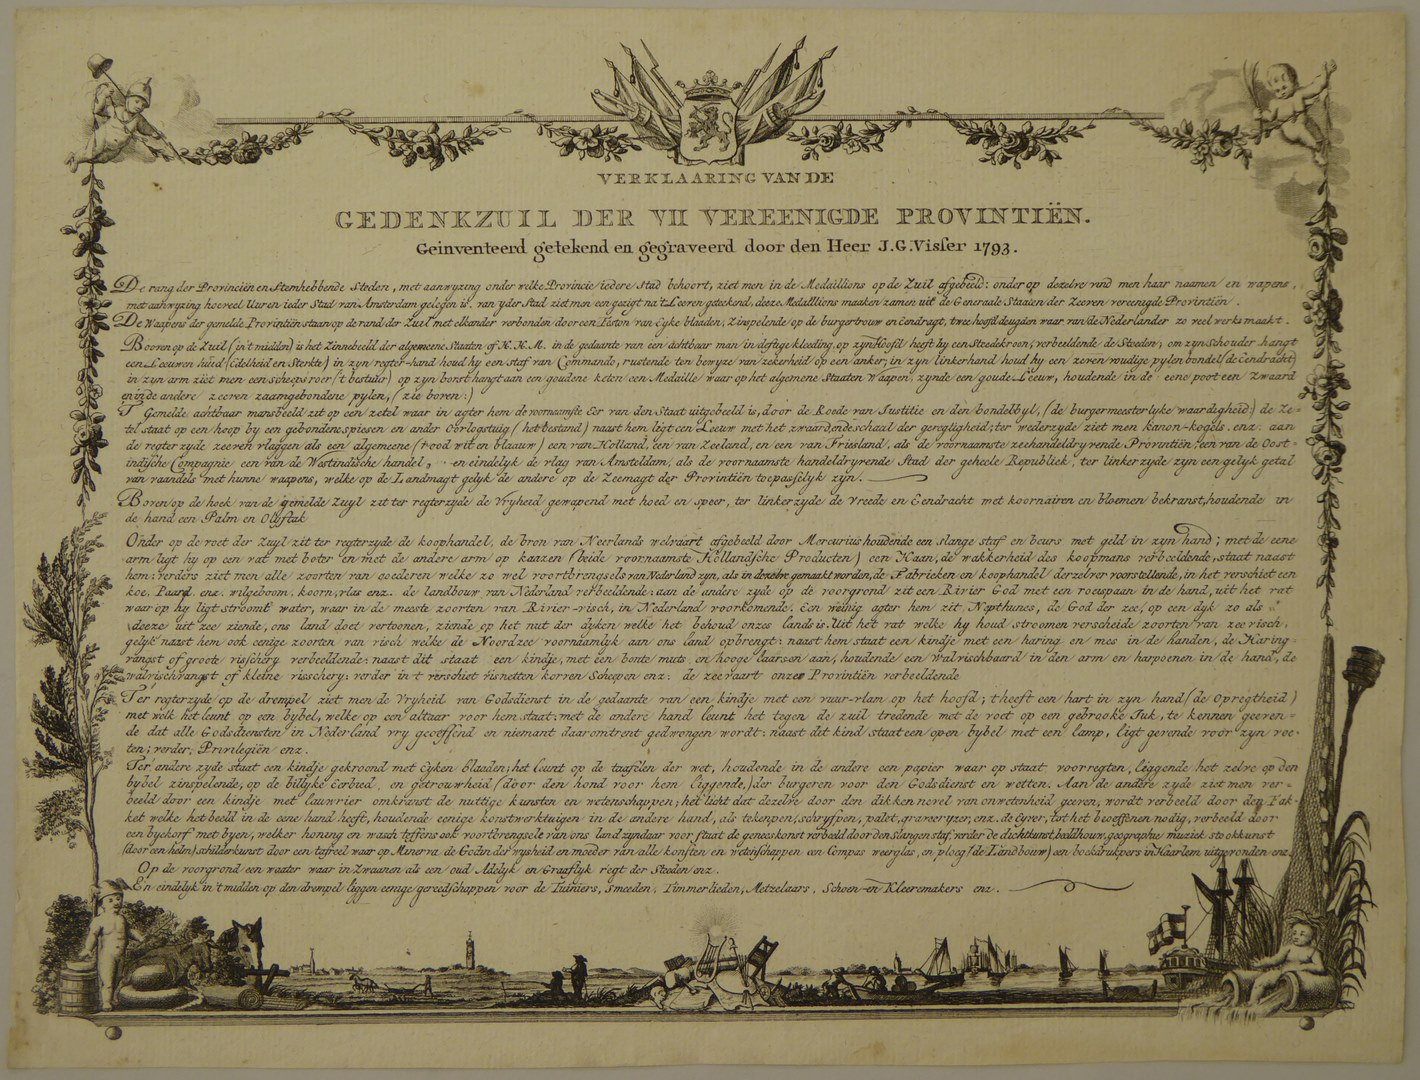 VERKLAARING VAN DE
GEDENKZUIL DER VII VEREENIGDE PROVINTIËN.
Geinventeerd getekend en gegraveerd door den Heer J.G. Visser 1793.
De rang der Provinciën en Stemhebbende Steden, met aanwyzing onder welke Provincie iedere stad behoort, ziet men in de Medaillions op de Zuil afgebeeld: onder op dezelve rand men haar naamen en wapens,
met aanwyzing hoeveel Uuren ieder Stad van Amsterdam gelegen is. van yder Stad ziet men een gezigt na 't Leeven geteekend, deeze Medaillions maaken zamen uit de Generaale Staaten der Zeeven vereenigde Provintiën.
De Waapens der gemelde Provintiën staan op de rand der Zuil met elkander verbonden door een Feston van Eyke blaaden, Zinspelende op de burgertrouw en Eendragt, twee hoofd deugden waar van de Nederlander zo veel werks maakt.
Boven op de Zuil (in't midden) is het Zinnebeeld der algemeene Staaten of H.H.M. in de gedaante van een achtbaar man in deftige kleeding, op zyn Hoofd heeft hy een Steedekroon, verbeeldende de Steeden; om zyn schouder hangt
een Leeuwen huid (Edelheid en Sterkte) in zyn regter-hand houd hy een staf van Commando, rustende ten bewyze van zekerheid op een anker; in zyn linkerhand houd hy een zeven voudige pylen bondel (de Eendracht)
in zyn arm ziet men een scheeps roer ('t bestuur) op zyn borst hangt aan een goudene keten een Medaille waar op het algemene Staaten Waapen, zynde een goude Leeuw, houdende in de eene poot een Zwaard
en in de andere zeeven zaamgebondene pylen, (zie boven:)
T Gemelde achtbaar mansbeeld zit op een zetel waar in agter hem de voornaamste Eer van den Staat uitgebeeld is, door de Roede van Justitie en den bondelbyl, (de burgermeesterlyke waardigheid:) de Ze=
tel staat op een hoop by een gebondene spiesen en ander Oorlogstuig (het bestand) naast hem ligt een Leeuw met het zwaard en de schaal der geregtigheid; ter wederzyde ziet men kanon-kogels. enz: aan
de regter zyde zeeven vlaggen als een algemeene (rood wit en blaauw) een van Holland, een van Zeeland, en een van Friesland, als de voornaamste zeehandeldryvende Provintiën, een van de Oost=
indische Compagnie een van de Westindische handel, en eindelyk de vlag van Amsteldam, als de voornaamste handeldryvende Stad der geheele Republiek, ter linker zyde zyn een gelyk getal
van vaandels met hunne waapens, welke op de Landmagt gelyk de andere op de Zeemagt der Provintiën toepasselyk zyn.
Boven op de hoek van de gemelde Zuyl zit ter regterzyde de Vryheid gewapend met hoed en speer, ter linker zyde de Vreede en Eendracht met koornairen en bloemen bekranst, houdende in
de hand een Palm en Olyftak
Onder op de voet der Zuyl zit ter regterzyde de koophandel, de bron van Neerlands welvaart afgebeeld door Mercurius houdende een slange staf en beurs met geld in zyn hand; met de eene
arm ligt hy op een vat met boter en met de andere arm op kaazen (beide voornaamste Hollandsche Producten) een Haan, de wakkerheid des koopmans verbeeldende, staat naast
hem: verders ziet men alle zoorten van goederen welke zo wel voortbrengsels van Nederland zyn, als in dezelve gemaakt worden, de Fabrieken en koophandel derzelver voorstellende, in het verschiet een
koe, Paard enz. wilgeboom, koorn, vlas enz. de landbouw van Nederland verbeeldende: aan de andere zyde op de voorgrond zit een Rivier God met een roeispaan in de hand, uit het vat
waar op hy ligt stroomt water, waar in de meeste zoorten van Rivier-visch, in Nederland voorkomende. Een weinig agter hem zit Nepthunes, de God der zee, op een dyk zo als
deeze uit zee ziende, ons land doet vertoonen, ziende op het nut der dyken welke het behoud onzes lands is. Uit het vat welke hy houd stroomen verscheide zoorten van zee visch,
gelyk naast hem ook eenige zoorten van visch welke de Noordzee voornaamlyk aan ons land opbrengt: naast hem staat een kindje met een haring en mes in de handen, de Haring=
vangst of groote visschery verbeeldende: naast dit staat een kindje, met een bonte muts en hooge laarsen aan, houdende een Walvischbaard in den arm en harpoenen in de hand, de
walvischvangst of kleine visschery: verder in 't verschiet visnetten korven Scheepen enz: de zeevaart onzer Provintiën verbeeldende
Ter regterzyde op de drempel ziet men de Vryheid van Godsdienst in de gedaante van een kindje met een vuur-vlam op het hoofd; t heeft een hart in zyn hand (de Opregtheid)
met welk het leunt op een bybel, welke op een altaar voor hem staat: met de andere hand leunt het tegen de zuil tredende met de voet op een gebrooke Juk, te kennen geeven=
de dat alle Godsdiensten in Nederland vry geoeffend en niemant daaromtrent gedwongen wordt: naast dit kind staat een open bybel met een lamp, ligt gevende voor zyn voe=
ten; verder, Privilegiën enz.
Ter andere zyde staat een kindje gekroond met Eyken blaaden; het leunt op de taafelen der wet, houdende in de andere een papier waar op staat voorregten, leggende het zelve op den
bybel zinspelende, op de billyke Eerbied, en getrouwheid (door den hond voor hem liggende,) der burgeren voor den Godsdienst en wetten. Aan de andere zyde ziet men ver=
beeld door een kindje met lauwrier omkranst de nuttige kunsten en wetenschappen; het licht dat dezelve door den dikken nevel van onwetenheid geeven, wordt verbeeld door den Fak=
ket welke het beeld in de eene hand heeft, houdende eenige konstwerktuigen in de andere hand, als tekenpen, schryfpen, palet, graveeryzer, enz. de Eyver, tot het beoeffenen nodig, verbeeld door
een byekorf met byen, welker honing en wasch teffens ook voortbrengsele van ons land zyn daar voor staat de geneeskonst verbeeld door den slangen staf, verder de dichtkunst, beeldhouw, geographie muziek stookkunst
(door een helm) schilderkunst door een tafreel waar op Minerva de Godin der wysheid en moeder van alle konsten en wetenschappen een Compas weerglas, en ploeg (de Landbouw) een boekdrukpers in Haarlem uitgevonden enz.
Op de voorgrond een water waar in Zwaanen als een oud Adelyk en Graaflyk regt der Steeden enz.
En eindelyk in't midden op den drempel liggen eenige gereedschappen voor de Tuiniers, Smeeden, Timmerlieden, Metzelaars, Schoen-en Kleeremakers enz.